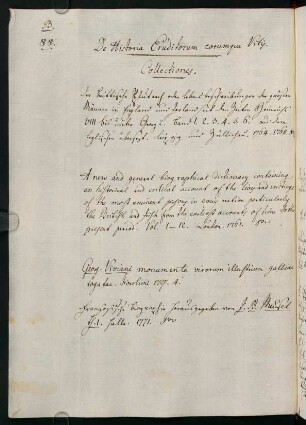 De Historia Eruditorum eorumque Vitis
Collectiones.
der Brittische Plutarch oder Lebensbeschreibungen der größten
Männer in England und Irrland, seit den Zeiten Heinrichs
VIII bis unter Georg II. Band 1. 2. 3. 4. 5. 6. aus dem
Englischen übersezt. Leipzig und Züllichau. 1764. 1768. 8.
A new and general biographical dictionary containing
an historical and critical account of the lives and writings
of the most eminent persons in every nation particularly
the British and Irish from the earliest accounts of time to the
present period. Vol. 1 – 12. London. 1761. 8vo.
Viviani monumenta virorum illustrium galliae
togatae. 4.
Französische Biographie herausgegeben von Meusel
Halle. 1771. 8vo